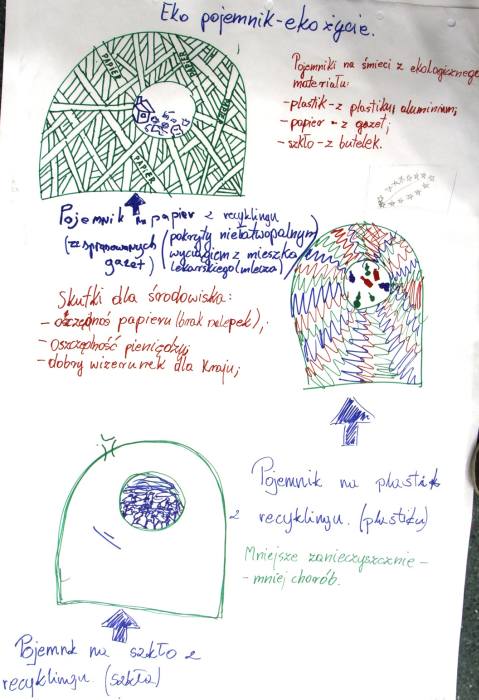 Eko pojemnik-eko życie.
Pojemniki na śmieci z ekologicznego
materiału:
-plastik-z plastiku, aluminium;
-papier - z gazet;
- szkło-z butelek.
PAPIER
PAPIER
PAPIER
PAPIER
Pojemnik na papier z recyklingu
(ze sprasowanych
gazet)
(pokryty niełatwopalnym
wyciągiem z mieszka
lekarskiego (mlecza)
Skutki dla środowiska:
- papieru (brak nalepek);
- oszczędność pieniędzy;
-dobry wizerunek dla kraju;
Pojemnik na plastik
z recyklingu. (plastiku)
Mniejsze zanieczyszcznie-
- mniej chorób.
Pojemnik na szkło z
recyklingu. (szkła)